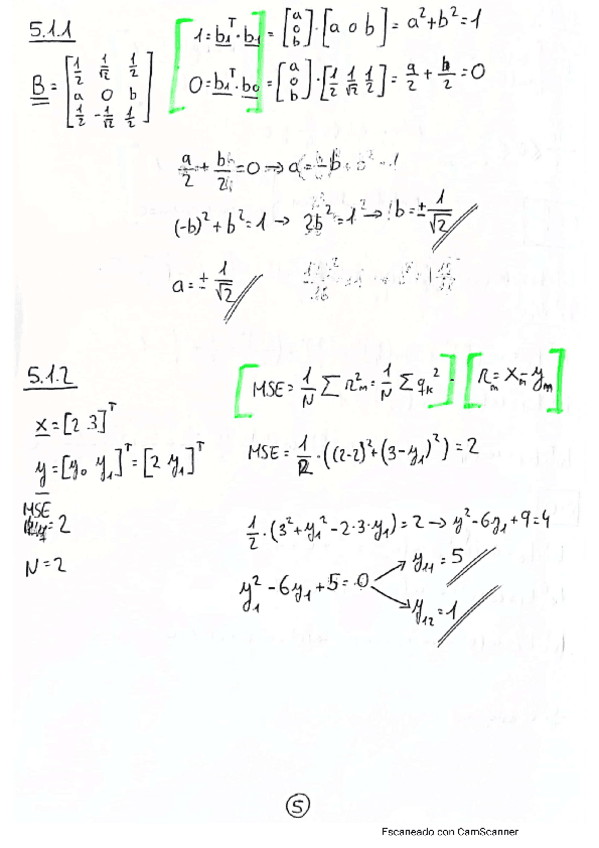 5.1.1
B = [1/2 1/√2 1/2; a 0 b; 1/2 -1/√2 1/2]
[1 = b₁ᵀ · b₁] = [a 0 b] · [a 0 b] = a² + b² = 1
[0 = b₁ᵀ · b₀] = [a 0 b] · [1/2 1/√2 1/2] = a/2 + b/2 = 0
a/2 + b/2 = 0 → a = -b
(-b)² + b² = 1 → 2b² = 1 → b = ± 1/√2
a = ± 1/√2
5.1.2
[MSE = 1/N Σ r²ₘ = 1/N Σ qₖ²] - [rₘ = xₘ - yₘ]
x = [2 3]ᵀ
y = [y₀ y₁]ᵀ = [2 y₁]ᵀ
MSE = 2
N = 2
MSE = 1/2 · ((2-2)² + (3-y₁)²) = 2
1/2 · (3² + y₁² - 2·3·y₁) = 2 → y² - 6y₁ + 9 = 4
y₁² - 6y₁ + 5 = 0
y₁₁ = 5
y₁₂ = 1
5
Escaneado con CamScanner